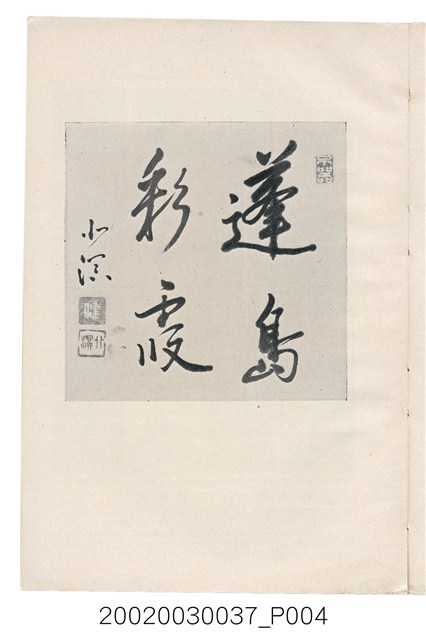 蓬島
彩霞
20020030037_P004